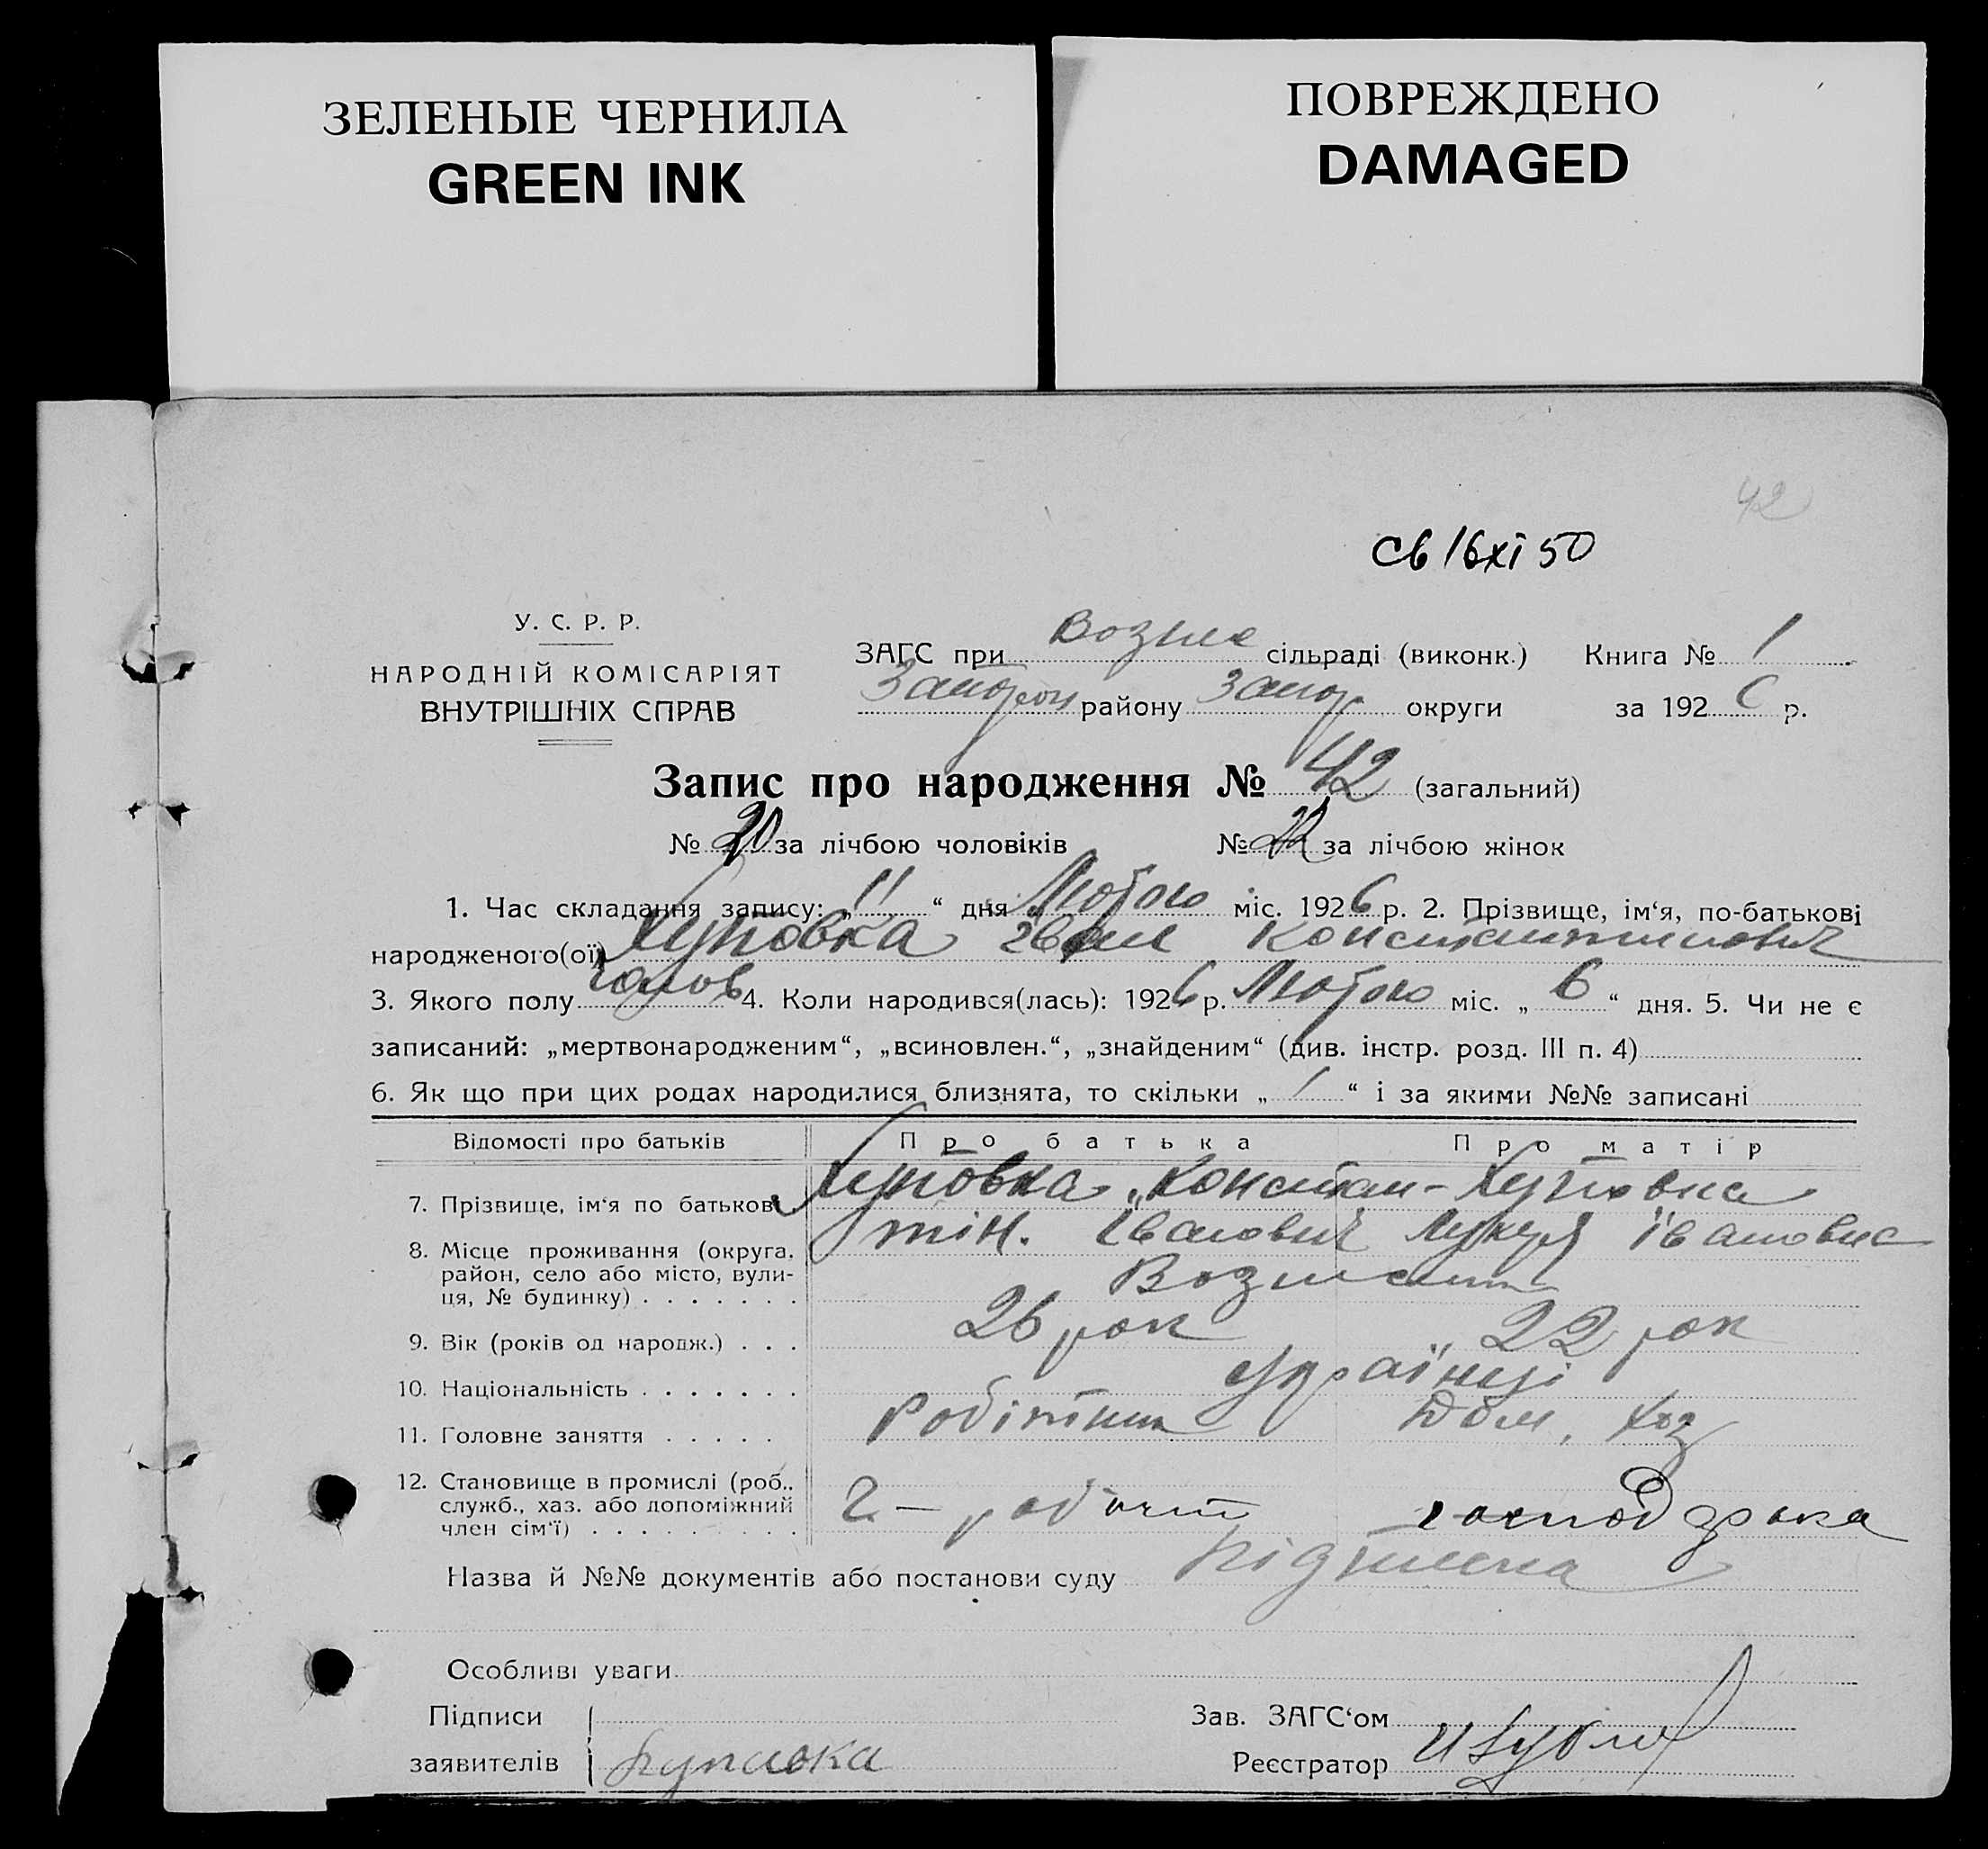 ЗЕЛЕНЫЕ ЧЕРНИЛА
GREEN INK
ПОВРЕЖДЕНО
DAMAGED
42
св 16 XI 50
У. С. Р. Р.
НАРОДНІЙ КОМІСАРІЯТ
ВНУТРІШНІХ СПРАВ
ЗАГС при Возне сільраді (виконк.) Книга № 1
району Запор округи за 192 р.
Запис про народження № 42 (загальний)
№ 20 за лічбою чоловіків № за лічбою жінок
1. Час складання запису: „ 11 “ дня Лютого міс. 1926 р. 2. Прізвище, ім‘я, по-батькові
народженого(ої) Хутовка Іван Константинович
3. Якого полу чолов 4. Коли народився(лась): 1926 р. Лютого міс. „ 6 “ дня. 5. Чи не є
записаний: „мертвонародженим“, „всиновлен.“, „знайденим“ (див. інстр. розд. III п. 4)
6. Як що при цих родах народилися близнята, то скільки „ 1 “ і за якими №№ записані
Відомості про батьків Про батька Про матір
7. Прізвище, ім‘я по батькові Хутовка Констан- Хутовка
тін. Іванович Лукеря Івановна
8. Місце проживання (округа,
район, село або місто, вули-
ця, № будинку)
9. Вік (років од народж.) 26 рок 22 рок
10. Національність Українці
11. Головне заняття Робітник Дом. хоз
12. Становище в промислі (роб.,
служб., хаз. або допоміжний
член сім‘ї)
Назва й №№ документів або постанови суду
Особливі уваги
Підписи
заявителів
Зав. ЗАГС‘ом
Реєстратор